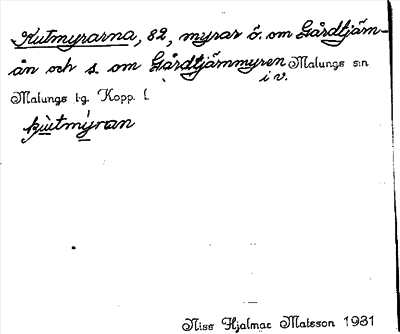 Kutmyrarna, 82, myrar ö. om Gårdtjärn-
ån och s. om Gårdtjärnmyren Malungs s:n
i v.
Malungs t:g. Kopp. l.
kùtmýran
Niss Hjalmar Matsson 1931